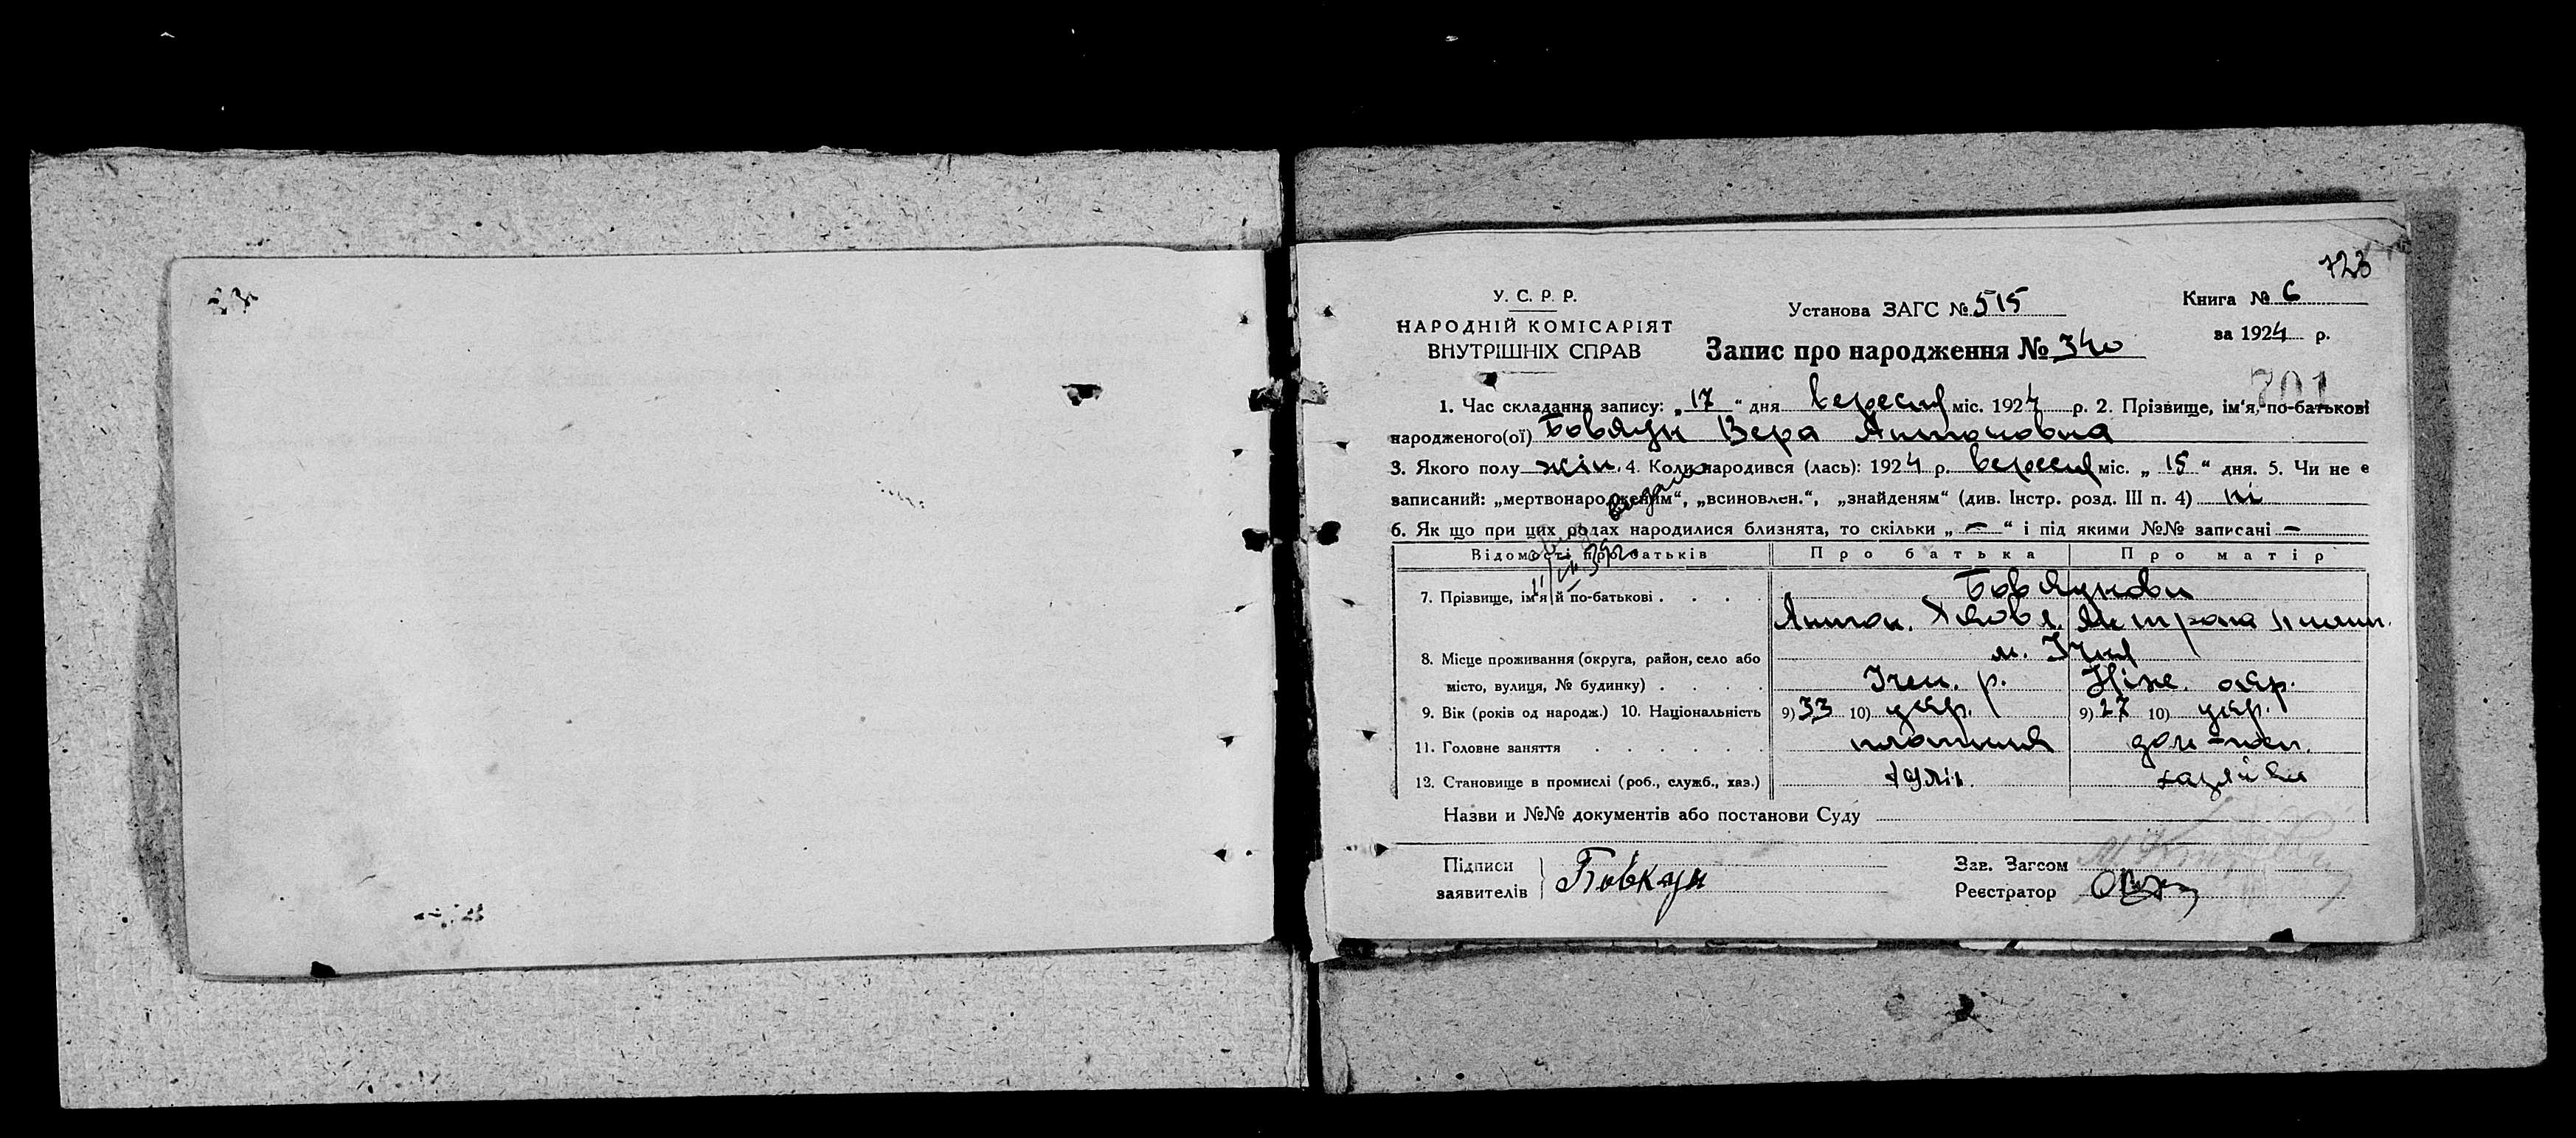 723
У. С. Р. Р.
НАРОДНІЙ КОМІСАРІЯТ
ВНУТРІШНІХ СПРАВ
Установа ЗАГС № 515
Запис про народження № 340
Книга № 6
за 1924 р.
701
1. Час складання запису: „17“ дня вересня міс. 1924 р. 2. Прізвище, ім'я, по-батькові
народженого(ої) Бовкун Вера Антоновна
3. Якого полу жін. 4. Коли народився (лась): 1924 р. вересня міс. „15“ дня. 5. Чи не є
записаний: „мертвонародженим“, „всиновлен.“, „знайденям“ (див. Інстр. розд. III п. 4) ні
6. Як що при цих родах народилися близнята, то скільки „—“ і під якими №№ записані —
Відомості про батьків Про батька Про матір
7. Прізвище, ім'я й по-батькові . . . . Бовкунови
Антон.
8. Місце проживання (округа, район, село або м. Ічня
місто, вулиця, № будинку) . . . . Ічен. р. Ніже. окр.
9. Вік (років од народж.) 10. Національність 9) 33 10) укр. 9) 27 10) укр.
11. Головне заняття . . . . . . дом-хоз.
12. Становище в промислі (роб., служб., хаз.) хазяйка
Назви и №№ документів або постанови Суду
Підписи
заявителів
Бовкун
Зав. Загсом
Реєстратор